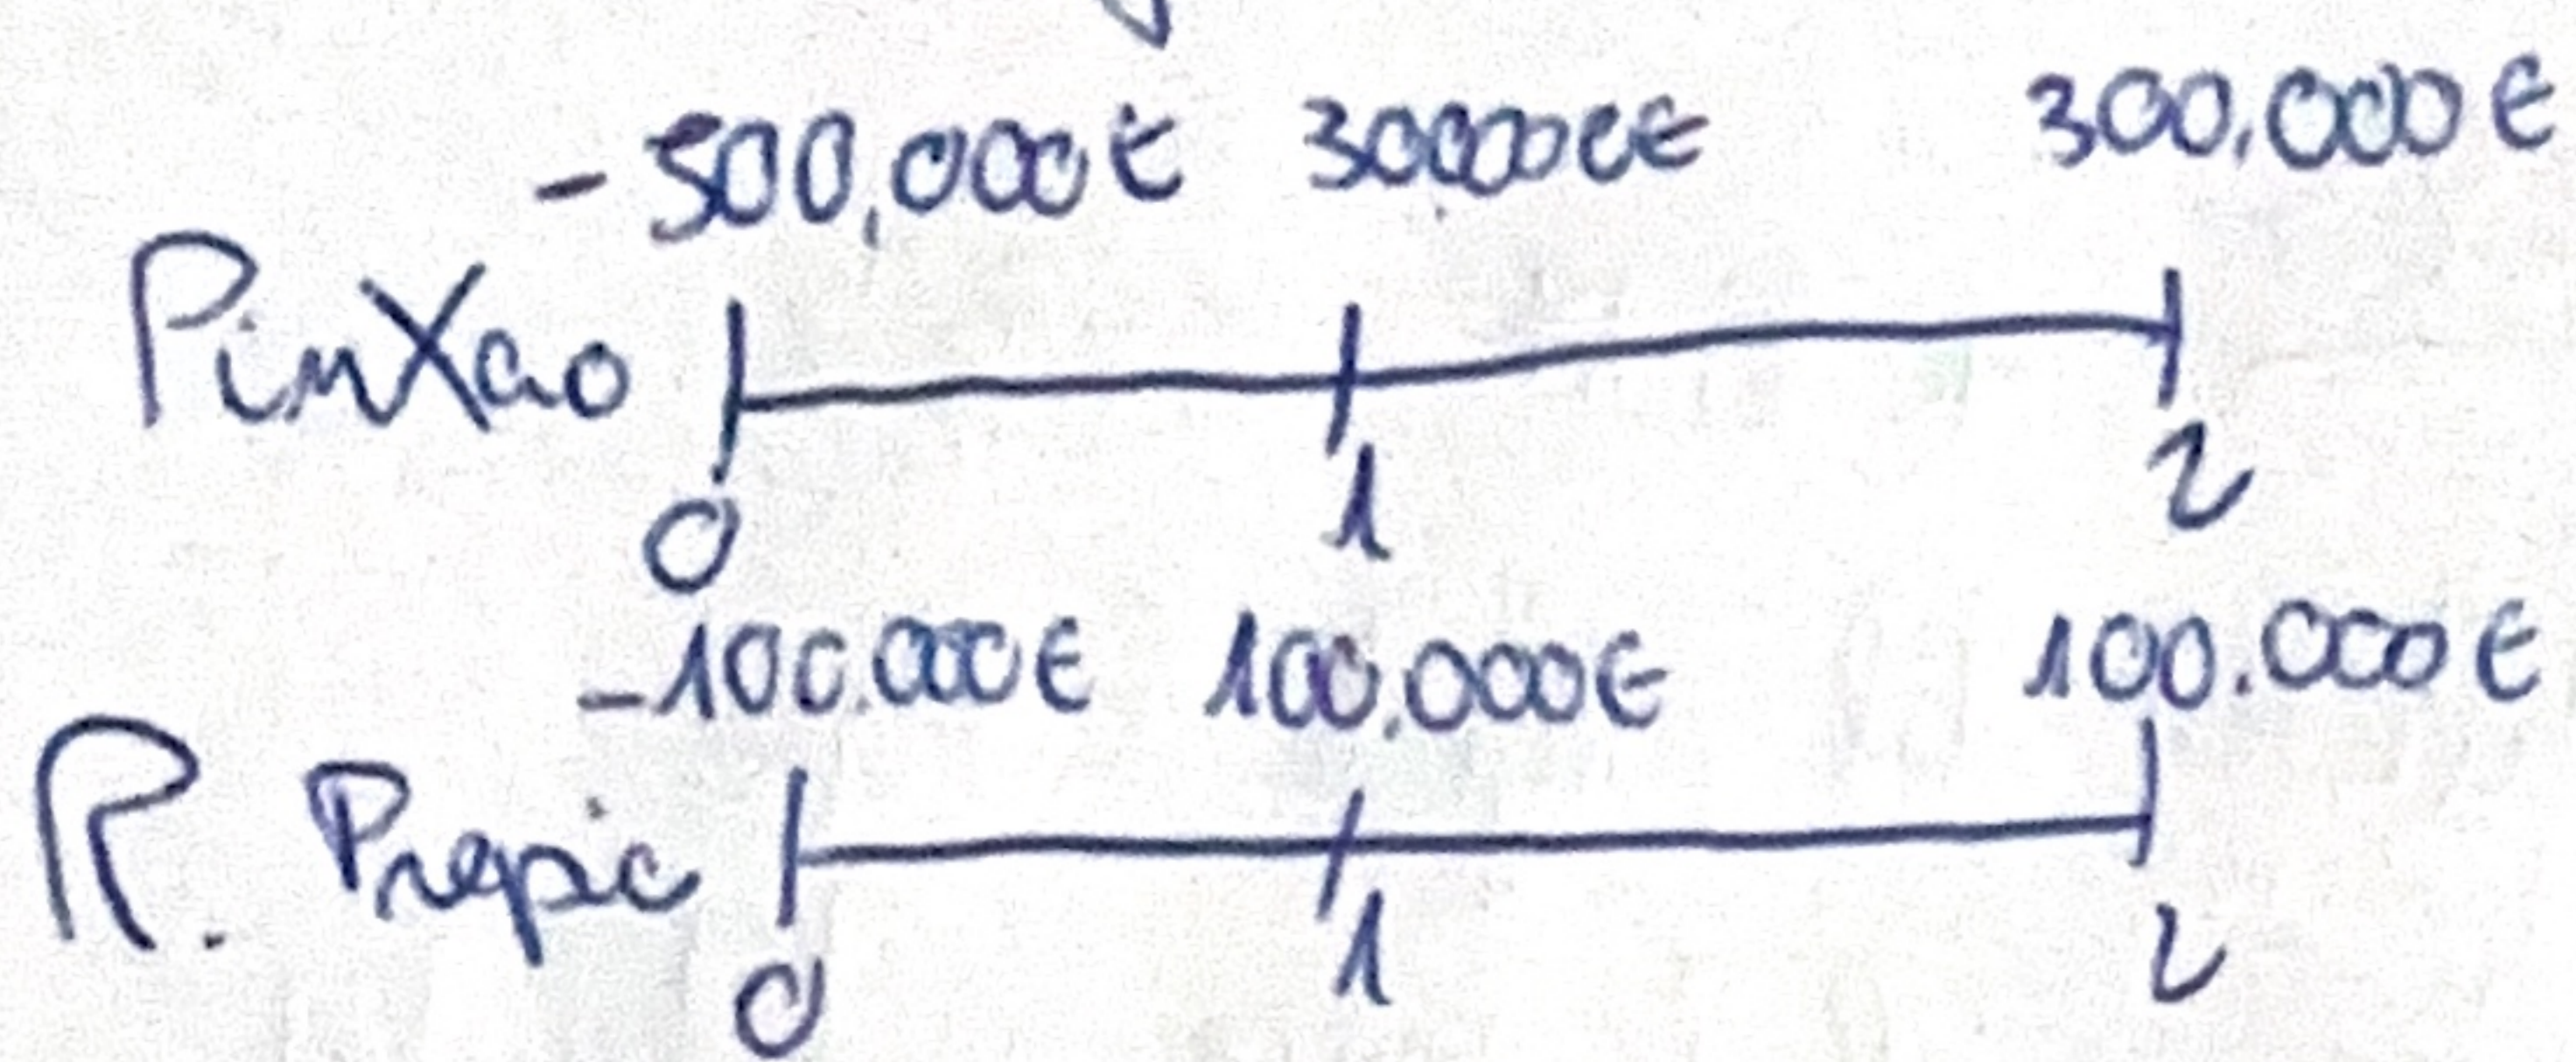 -500,000€ 300000€ 300,000€
PinXao
0 1 2
-100.000€ 100.000€ 100.000€
R. Prepic
0 1 2